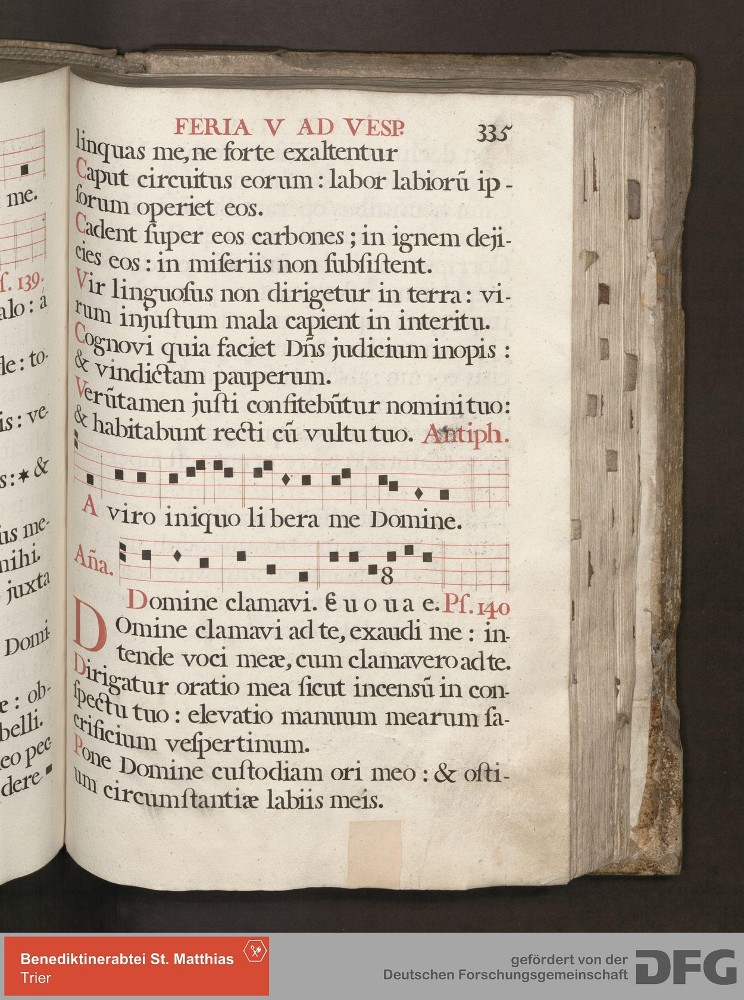 FERIA V AD VESP. 335
linquas me, ne forte exaltentur
Caput circuitus eorum : labor labiorũ ip-
ſorum operiet eos.
Cadent ſuper eos carbones ; in ignem deji-
cies eos : in miſeriis non ſubſiſtent.
Vir linguoſus non dirigetur in terra : vi-
rum injuſtum mala capient in interitu.
Cognovi quia faciet Dñs judicium inopis :
& vindictam pauperum.
Verũtamen juſti confitebũtur nomini tuo :
& habitabunt recti cũ vultu tuo. Antiph.
A viro iniquo libera me Domine.
Aña.
8
Domine clamavi. E u o u a e. Pſ. 140
Domine clamavi ad te, exaudi me : in-
tende voci meæ, cum clamavero ad te.
Dirigatur oratio mea ſicut incensũ in con-
ſpectu tuo : elevatio manuum mearum ſa-
crificium veſpertinum.
Pone Domine cuſtodiam ori meo : & oſti-
um circumſtantiæ labiis meis.
me.
ſ. 139.
alo : a
le : to-
is : ve-
s : * &
us me-
nihi.
juxta
Domi-
e : ob-
belli.
eo pec-
dere
Benediktinerabtei St. Matthias
Trier
gefördert von der
Deutschen Forschungsgemeinschaft
DFG